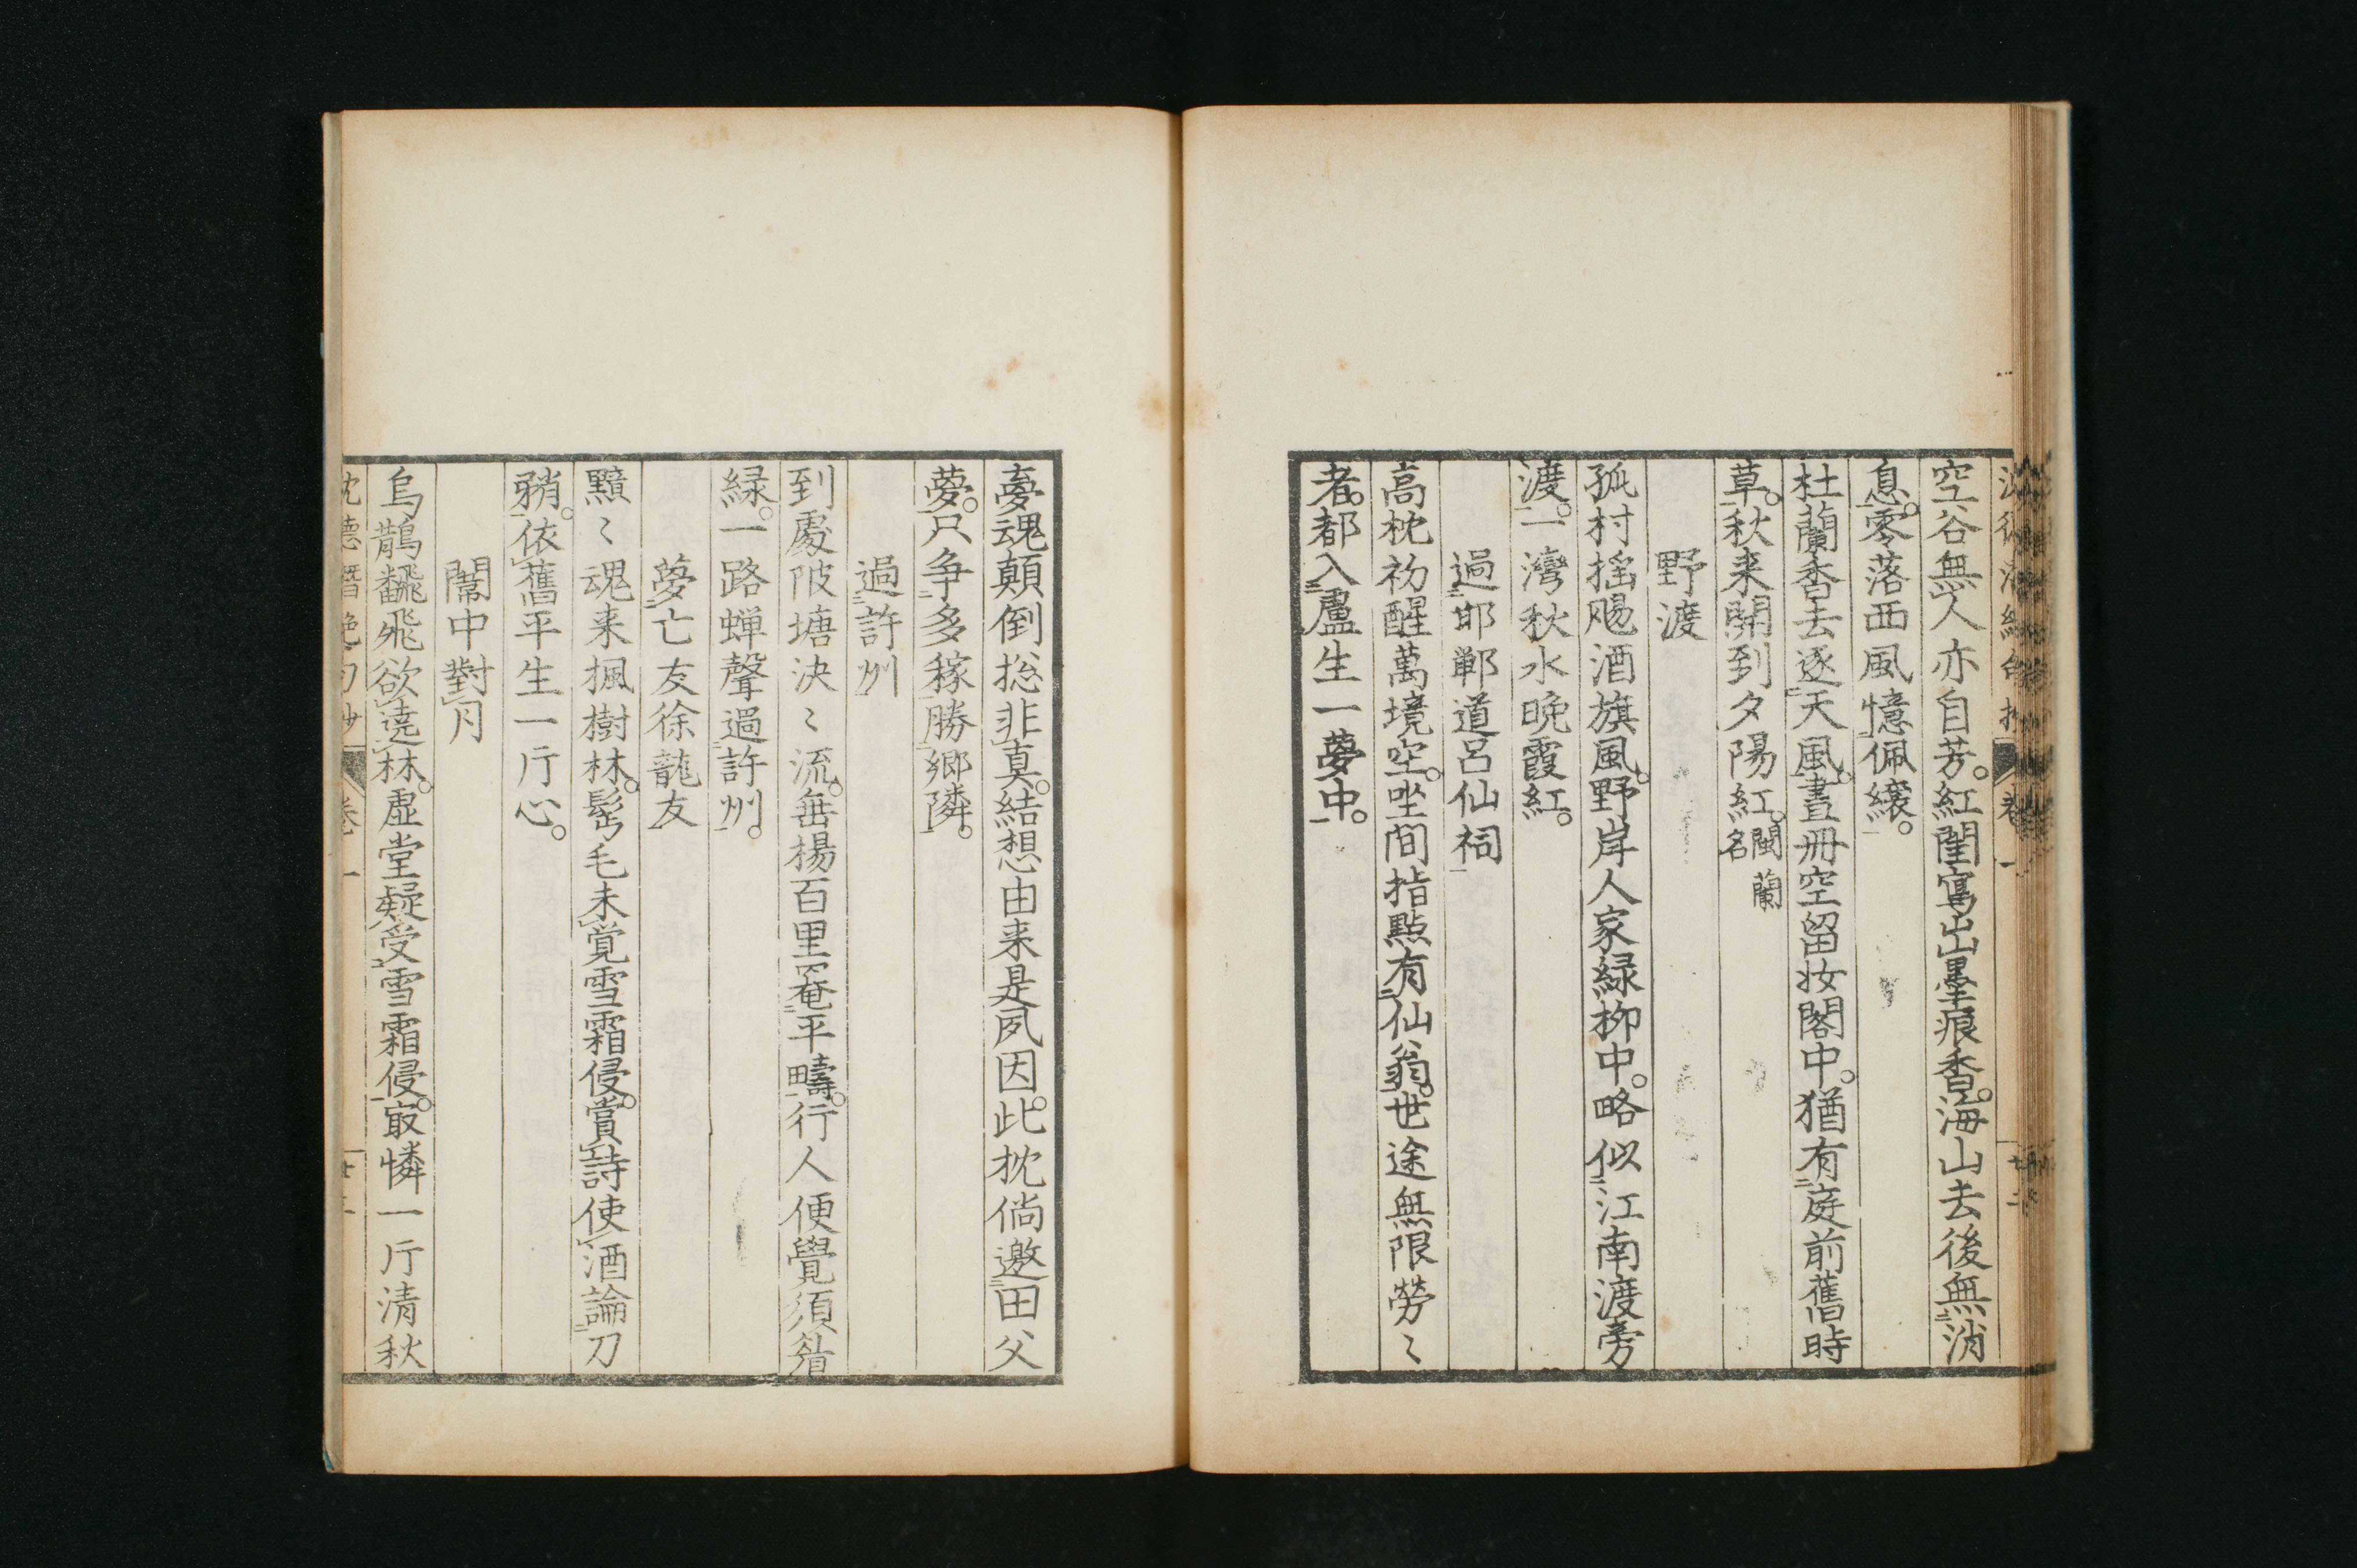 空谷無人亦自芳。紅閨寫出墨痕香。海山去後無消
息。零落西風憶佩纕。
杜蘭香去逐天風。畫冊空留妝閣中。猶有庭前舊時
草。秋来開到夕陽紅。閩蘭名
野渡
孤村揺颺酒旗風。野岸人家緑柳中。略似江南渡旁
渡。一灣秋水晩霞紅。
過邯鄲道呂仙祠
高枕初醒萬境空。坐間指點有仙翁。世途無限勞〻
者。都入盧生一夢中。
夣魂顛倒揔非真。結想由来是夙因。此枕倘邀田父
夢。只争多稼勝鄉隣。
過許州
到處陂塘決〻流。垂楊百里罨平疇。行人便覺須眉
緑。一路蝉聲過許州。
夢亡友徐龍友
黯〻魂来楓樹林。髩毛未覚雪霜侵。賞詩使酒論刀
矟。依舊平生一片心。
閙中對月
烏鵲飜飛欲遶林。虚堂疑受雪霜侵。㝡憐一片清秋
沈德潛絶句抄 卷一